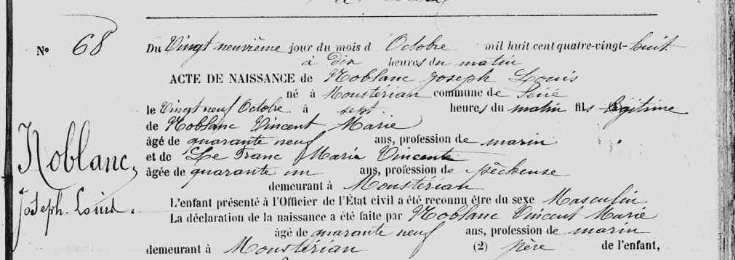 N° 68
Du Vingt neuvième jour du mois d Octobre mil huit cent quatre-vingt-huit
à dix heures du matin
ACTE DE NAISSANCE de Noblanc Joseph Louis
né à Moustérian commune de Séné
le Vingt neuf Octobre à sept heures du matin fils légitime
de Noblanc Vincent Marie
âgé de quarante neuf ans, profession de marin
et de Le Franc Marie Vincente
âgée de quarante un ans, profession de pêcheuse
demeurant à Moustérian
Noblanc,
Joseph Louis.
L'enfant présenté à l'Officier de l'État civil a été reconnu être du sexe Masculin
La déclaration de la naissance a été faite par Noblanc Vincent Marie
âgé de quarante neuf ans, profession de marin
demeurant à Moustérian (2) père de l'enfant,